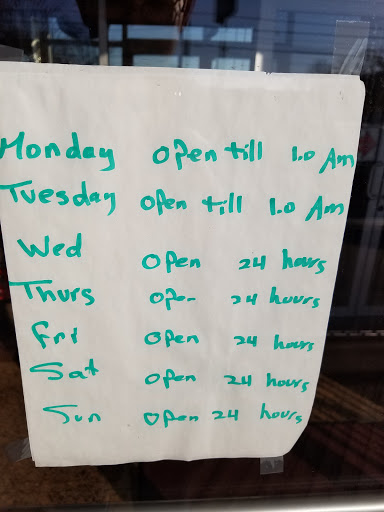 Monday open till 1.0 Am
Tuesday open till 1.0 Am
Wed open 24 hours
Thurs open 24 hours
Fri open 24 hours
Sat open 24 hours
Sun open 24 hours